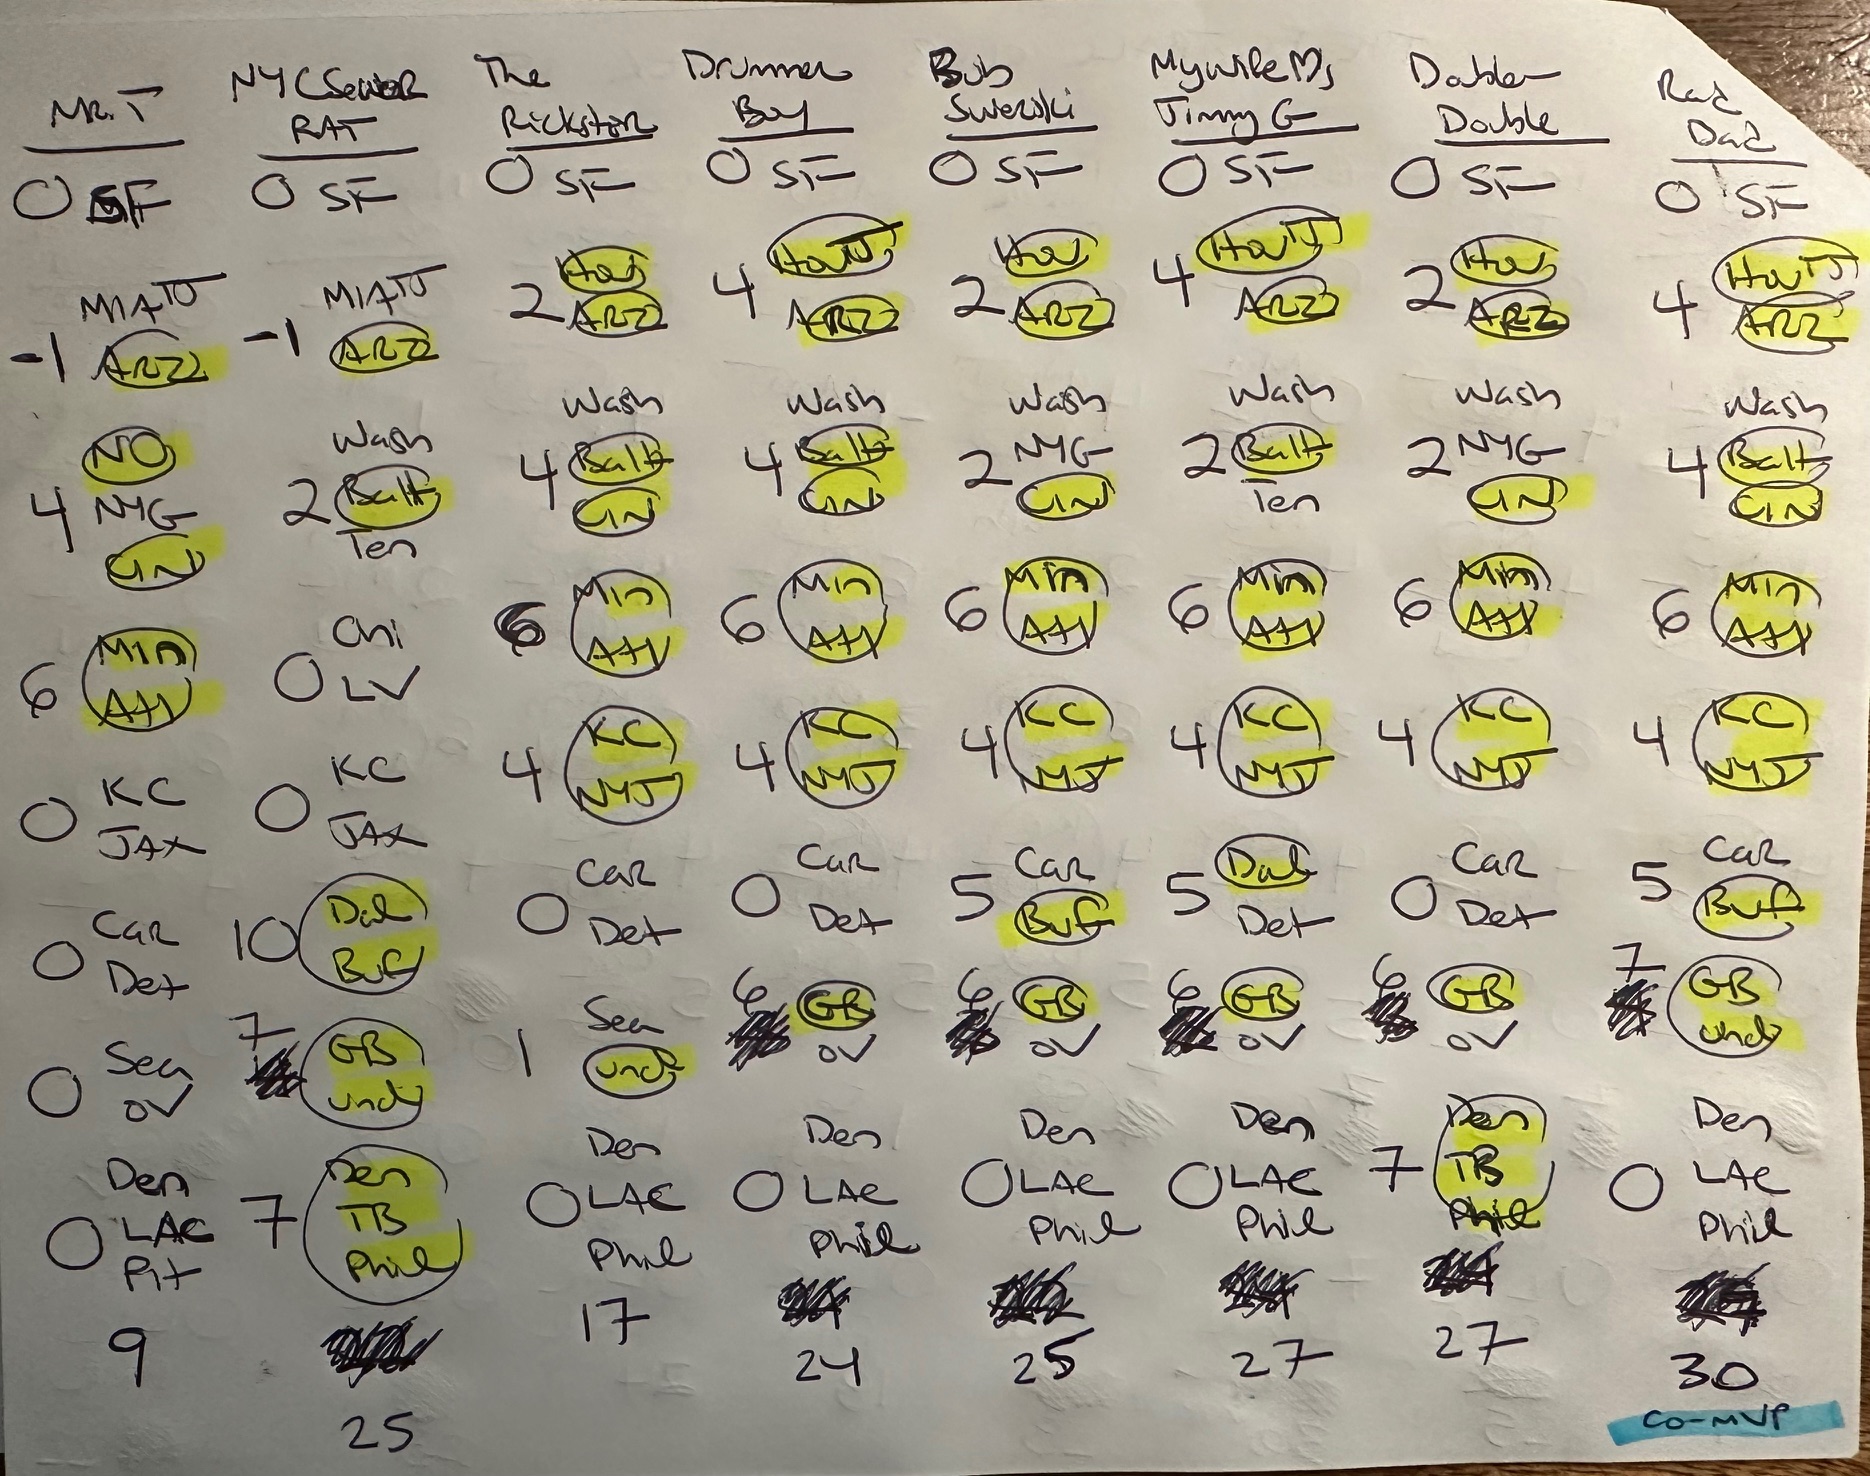 Mr. T
O SF
MIA TJ
-1 ARZ
NO
4 NYG
CIN
Min
6 Atl
KC
O JAX
Car
O Det
Sea
O OV
Den
O LAC
Pit
9
NYC Sewer
RAT
O SF
MIA TJ
-1 ARZ
Wash
2 Balt
Ten
Chi
O LV
KC
O JAX
Dal
10 Buf
7 GB
und
Den
7 TB
Phil
25
The
Rickster
O SF
Hou
2 ARZ
Wash
4 Balt
CIN
Min
6 Atl
KC
4 NYJ
Car
O Det
Sea
1 und
Den
O LAC
Phil
17
Drummer
Boy
O SF
Hou TJ
4 ARZ
Wash
4 Balt
CIN
Min
6 Atl
KC
4 NYJ
Car
O Det
6 GB
OV
Den
O LAC
Phil
24
Bob
Swerski
O SF
Hou
2 ARZ
Wash
2 NYG
CIN
Min
6 Atl
KC
4 NYJ
Car
5 Buf
6 GB
OV
Den
O LAC
Phil
25
My wife Ds
Jimmy G
O SF
Hou TJ
4 ARZ
Wash
2 Balt
Ten
Min
6 Atl
KC
4 NYJ
Dal
5 Det
6 GB
OV
Den
O LAC
Phil
27
Double
Double
O SF
Hou
2 ARZ
Wash
2 NYG
CIN
Min
6 Atl
KC
4 NYJ
Car
O Det
6 GB
OV
Den
7 TB
Phil
27
Rad
Dad
O SF
Hou TJ
4 ARZ
Wash
4 Balt
CIN
Min
6 Atl
KC
4 NYJ
Car
5 Buf
7 GB
und
Den
O LAC
Phil
30
CO-MVP